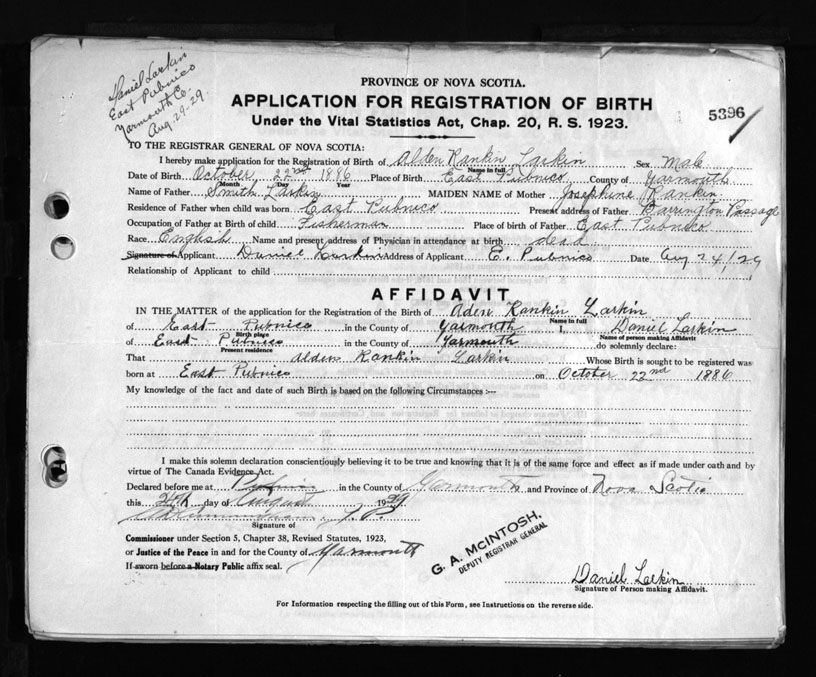 Daniel Larkin
East Pubnico
Yarmouth Co.
Aug. 29-29
PROVINCE OF NOVA SCOTIA.
APPLICATION FOR REGISTRATION OF BIRTH
Under the Vital Statistics Act, Chap. 20, R. S. 1923.
5396
TO THE REGISTRAR GENERAL OF NOVA SCOTIA:
I hereby make application for the Registration of Birth of Alden Rankin Larkin Sex Male
Name in full
Date of Birth October, 22nd 1886 Place of Birth East Pubnico County of Yarmouth
Month Day Year
Name of Father Smith Larkin MAIDEN NAME of Mother Josephine Rankin
Residence of Father when child was born East Pubnico Present address of Father Barrington Passage
Occupation of Father at Birth of child Fisherman Place of birth of Father East Pubnico
Race English Name and present address of Physician in attendance at birth dead
Signature of Applicant Daniel Larkin Address of Applicant E. Pubnico Date Aug 24/29
Relationship of Applicant to child
AFFIDAVIT
IN THE MATTER of the application for the Registration of the Birth of Aden Rankin Larkin
Name in full
of East Pubnico in the County of Yarmouth I, Daniel Larkin
Birth place Name of person making Affidavit
of East Pubnico in the County of Yarmouth do solemnly declare:
Present residence
That Alden Rankin Larkin Whose Birth is sought to be registered was
born at East Pubnico on October 22nd 1886
My knowledge of the fact and date of such Birth is based on the following Circumstances :—
I make this solemn declaration conscientiously believing it to be true and knowing that it is of the same force and effect as if made under oath and by
virtue of The Canada Evidence Act.
Declared before me at in the County of Yarmouth and Province of Nova Scotia
this 24th day of August 1929
J. P.
Signature of
Commissioner under Section 5, Chapter 38, Revised Statutes, 1923,
or Justice of the Peace in and for the County of Yarmouth
If sworn before a Notary Public affix seal.
G. A. McINTOSH,
DEPUTY REGISTRAR GENERAL
Daniel Larkin
Signature of Person making Affidavit.
For Information respecting the filling out of this Form, see Instructions on the reverse side.